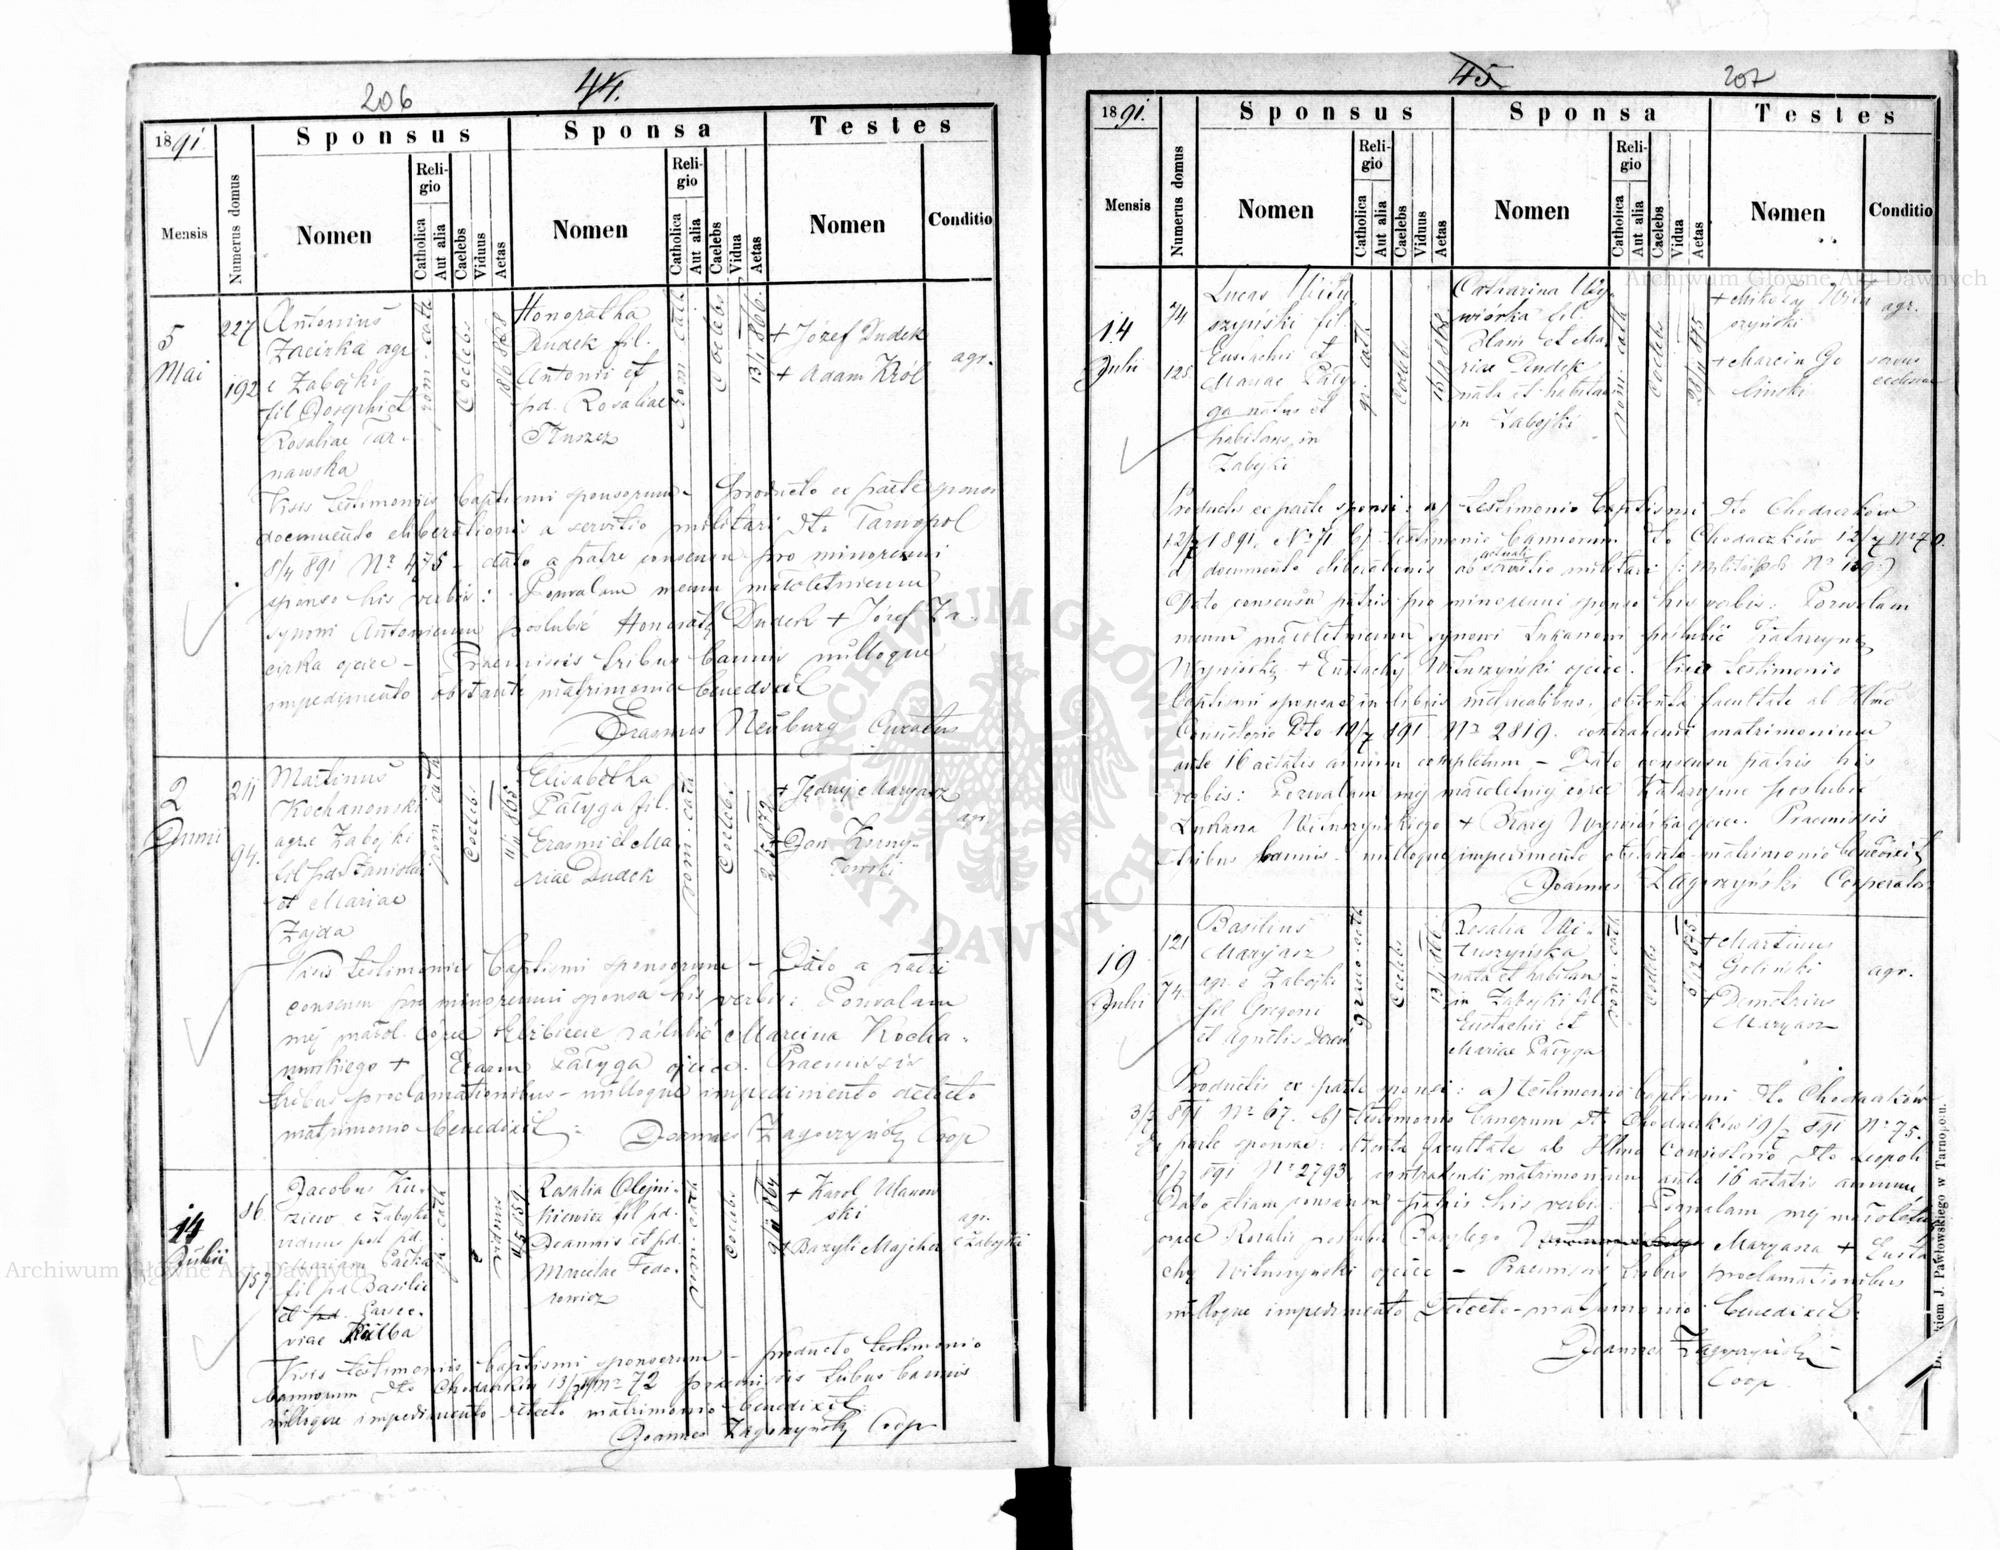 206
44.
1891.
Mensis
Numerus domus
Sponsus
Sponsa
Testes
Nomen
Religio
Catholica
Aut alia
Caelebs
Viduus
Aetas
Nomen
Religio
Catholica
Aut alia
Caelebs
Vidua
Aetas
Nomen
Conditio
5
Mai
227
192
Antonius
Zacirka agr
e Zabojki
fil Josephi et
Rosaliae Tar-
nawska
rom. cath
Coelebs
Honoratha
Dudek fil.
Antonii et
pd. Rosaliae
Tłuszcz
rom. cath
Coelebs
+ Józef Dudek
+ Adam Król
agr.
Visis testimoniis baptismi sponsorum - producto ex parte sponsi
documento eliberationis a servitio militari dto Tarnopol
8/4 891 No 475 - dato a patre consensu pro minorenni
sponso his verbis: Pozwalam memu małoletniemu
synowi Antoniemu poślubić Honoratę Dudek + Józef Za-
cirka ojciec - Praemissis tribus bannis nulloque
impedimento obstante matrimonio benedixit
Erasmus Neuburg Curatus
2
Junii
211
94.
Martinus
Kochanowski
agr. e Zabojki
fil pd Stanislai
et Mariae
Zajda
rom. cath
Coelebs
11/11 865
Elisabetha
Pałyga fil.
Erasmi et Ma-
riae Dudek
rom. cath
Coelebs
+ Jędrzej Maryasz
Jan Krny-
towski
agr
Visis testimoniis baptismi sponsorum - Dato a patri
consensu pro minorenni sponsa his verbis: Pozwalam
mej małol. córce Elżbiecie zaślubić Marcina Kocha-
nowskiego + Erazm Pałyga ojciec. Praemissis
tribus proclamationibus - nulloque impedimento detecto
matrimonio benedixit:
Joannes Zagorzyński Coop
14
Julii
86
157
Jacobus Ku-
ziew e Zabojki
viduus post pd.
Mariam
fil pd Basilii
et pd. Parace-
viae Kulba
gr. cath
viduus
Rosalia Olejni-
kiewicz fil pd.
Joannis et pd.
Marcelae Fedo-
rowicz
rom. cath
Coelebs
9/11 864
+ Karol Ulanow
ski
+ Bazyli Majcher
agr.
e Zabojki
Visis testimoniis baptismi sponsorum - producto testimonio
bannorum dto Chodaczków 13/7 891 No 72 praemissis tribus bannis
nulloque impedimento detecto matrimonio benedixit.
Joannes Zagorzyński Coop
45
207
1891.
Mensis
Numerus domus
Sponsus
Sponsa
Testes
Nomen
Religio
Catholica
Aut alia
Caelebs
Viduus
Aetas
Nomen
Religio
Catholica
Aut alia
Caelebs
Vidua
Aetas
Nomen
Conditio
14
Julii
74
125
Lucas Witu
szyński fil.
Eustachii et
Mariae Pały-
ga natus et
habitans in
Zabojki
gr. cath
Coelebs
Catharina Wy-
wiórka fil
Blasii et Ma-
riae Dudek
nata et habitans
in Zabojki
rom. cath
Coelebs
+ Mikołaj Witu
szyński
+ Marcin Go
liński
agr.
servus
ecclesiae
Productis ex parte sponsi: a) testimonio baptismi dto Chodaczków
12/7 1891. No 71 b) testimonio bannorum dto Chodaczków 12/7 No 70.
documento eliberationis ab actuali servitio militari
Dato consensu patris pro minorenni sponso his verbis: Pozwalam
memu małoletniemu synowi Łukaszowi poślubić Katarzynę
Wywiórkę + Eustachy Wituszyński ojciec. Viso testimonio
baptismi sponsae in libris metricalibus, obtenta facultate ab Illmo
Consistorio dto 10/7 891. No 2819. contrahendi matrimonium
ante 16 aetatis annum completum - Dato consensu patris his
verbis: Pozwalam mej małoletniej córce Katarzynie poślubić
Łukasza Wituszyńskiego + Błażej Wywiórka ojciec. Praemissis
tribus bannis - nulloque impedimento obstante matrimonio benedixit
Joannes Zagorzyński Cooperator
19
Julii
121
74.
Basilius
Maryasz
agr. e Zabojki
fil Gregorii
et Agnetis
graeco-cath
Coelebs
Rosalia Wi-
tuszyńska
nata et habitans
in Zabojki fil
Eustachii et
Mariae Pałyga
rom. cath
Coelebs
5/12 875
+ Martinus
Goliński
+ Demetrius
Maryasz
agr.
Productis ex parte sponsi: a) testimonio baptismi dto Chodaczków
3/7 891 No 67. b) testimonio bannorum dt. Chodaczków 19/7 891 No 75.
Ex parte sponsae: obtenta facultate ab Illmo Consistorio dto Leopoli
8/7 891 No 2793. contrahendi matrimonium ante 16 aetatis annum,
Dato etiam consensu patris his verbis: Pozwalam mej małoletniej
córce Rozalii poślubić Bazylego Maryasza + Eusta
chy Wituszyński ojciec - Praemissis tribus proclamationibus
nulloque impedimento detecto - matrimonio benedixit:
Joannes Zagorzyński
Coop.
kiem J. Pawłowskiego w Tarnopolu.
Archiwum Główne Akt Dawnych
Archiwum Główne Akt Dawnych
ARCHIWUM GŁÓWNE
AKT DAWNYCH